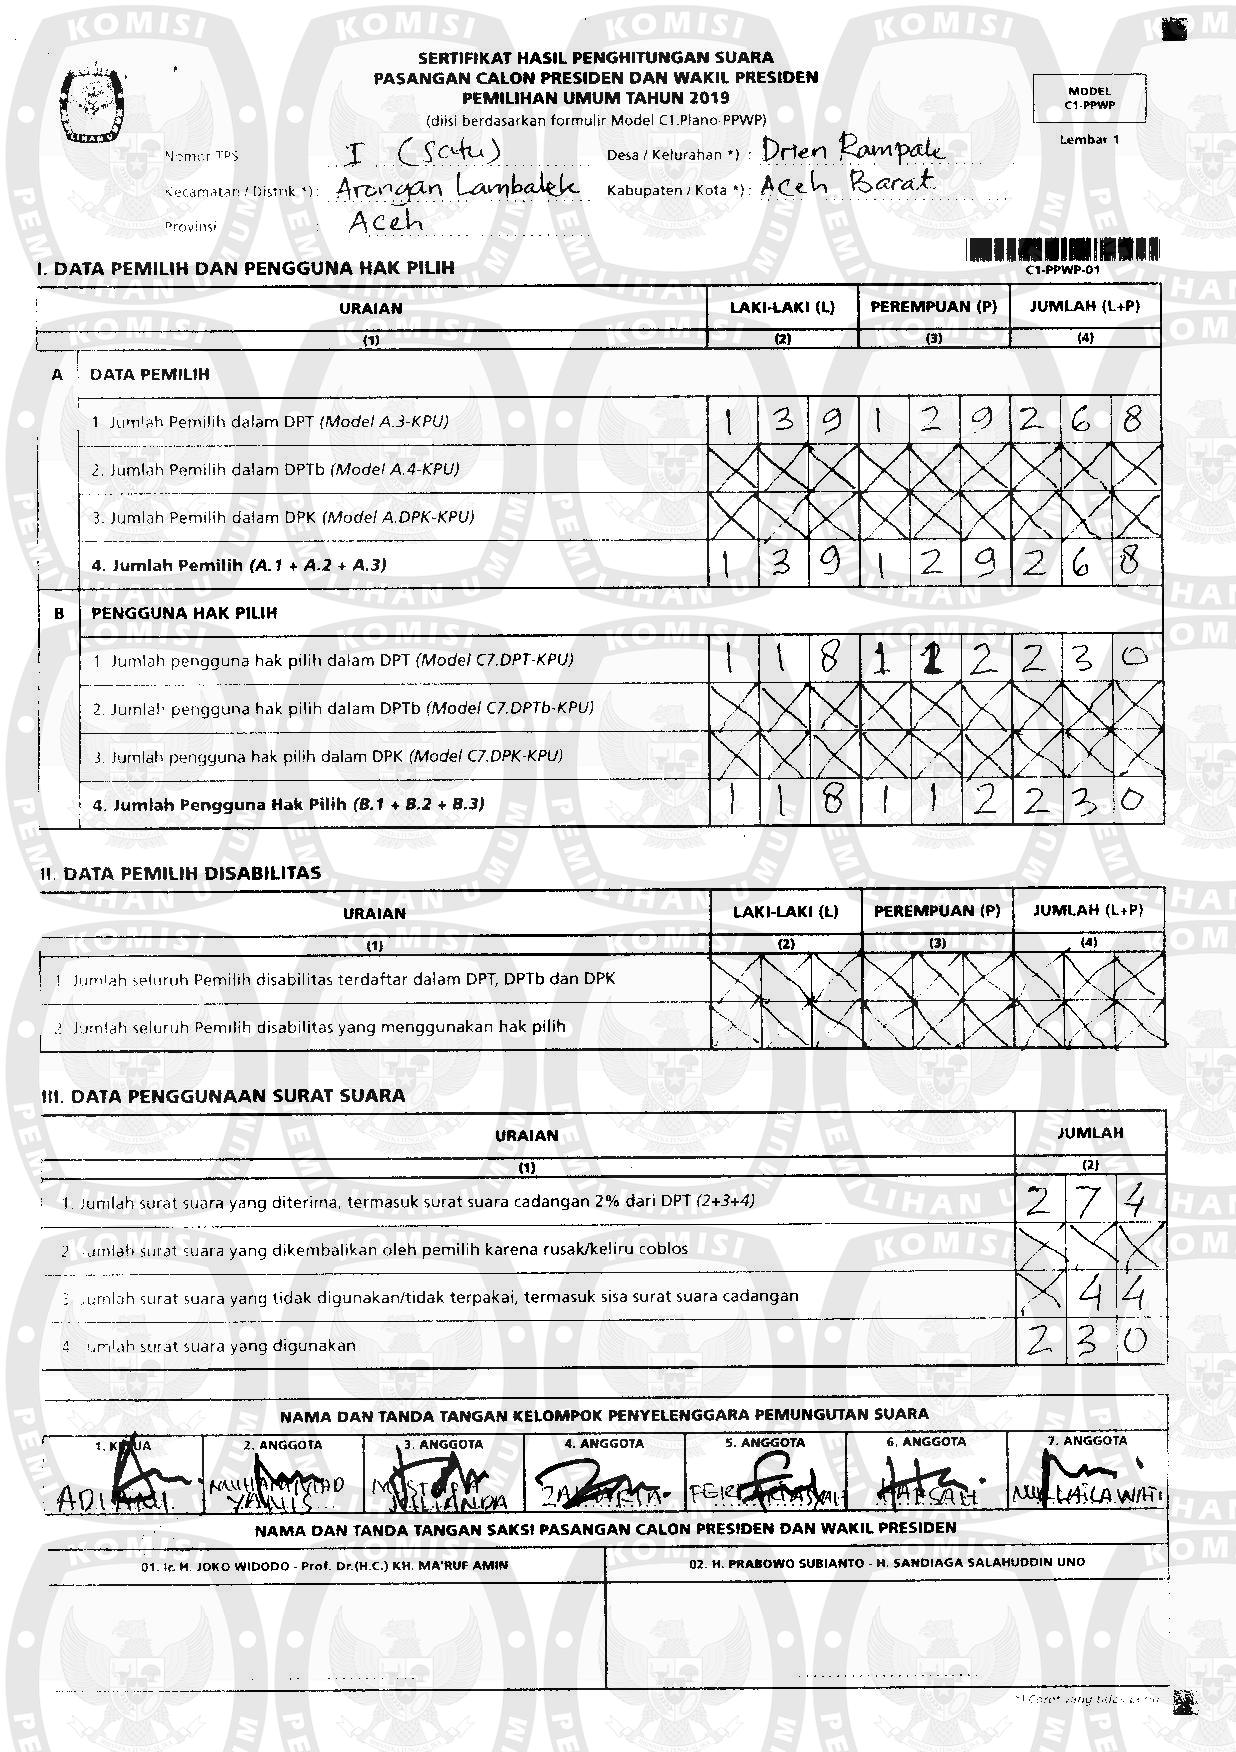 SERTIFIKAT HASIL PENGHITUNGAN SUARA
PASANGAN CALON PRESIDEN DAN WAKIL PRESIDEN
PEMILIHAN UMUM TAHUN 2019
(diisi berdasarkan formulir Model C1.Plano-PPWP)
MODEL
C1-PPWP
Lembar 1
Nomor TPS : I (Satu) Desa / Kelurahan *) : Drien Rampak
Kecamatan / Distrik *) : Arongan Lambalek Kabupaten / Kota *) : Aceh Barat
Provinsi : Aceh
C1-PPWP-01
I. DATA PEMILIH DAN PENGGUNA HAK PILIH
URAIAN LAKI-LAKI (L) PEREMPUAN (P) JUMLAH (L+P)
(1) (2) (3) (4)
A DATA PEMILIH
1. Jumlah Pemilih dalam DPT (Model A.3-KPU) 1 3 9 1 2 9 2 6 8
2. Jumlah Pemilih dalam DPTb (Model A.4-KPU) X X X X X X X X X
3. Jumlah Pemilih dalam DPK (Model A.DPK-KPU) X X X X X X X X X
4. Jumlah Pemilih (A.1 + A.2 + A.3) 1 3 9 1 2 9 2 6 8
B PENGGUNA HAK PILIH
1. Jumlah pengguna hak pilih dalam DPT (Model C7.DPT-KPU) 1 1 8 1 1 2 2 3 0
2. Jumlah pengguna hak pilih dalam DPTb (Model C7.DPTb-KPU) X X X X X X X X X
3. Jumlah pengguna hak pilih dalam DPK (Model C7.DPK-KPU) X X X X X X X X X
4. Jumlah Pengguna Hak Pilih (B.1 + B.2 + B.3) 1 1 8 1 1 2 2 3 0
II. DATA PEMILIH DISABILITAS
URAIAN LAKI-LAKI (L) PEREMPUAN (P) JUMLAH (L+P)
(1) (2) (3) (4)
1. Jumlah seluruh Pemilih disabilitas terdaftar dalam DPT, DPTb dan DPK X X X X X X X X X
2. Jumlah seluruh Pemilih disabilitas yang menggunakan hak pilih X X X X X X X X X
III. DATA PENGGUNAAN SURAT SUARA
URAIAN JUMLAH
(1) (2)
1. Jumlah surat suara yang diterima, termasuk surat suara cadangan 2% dari DPT (2+3+4) 2 7 4
2. Jumlah surat suara yang dikembalikan oleh pemilih karena rusak/keliru coblos X X X
3. Jumlah surat suara yang tidak digunakan/tidak terpakai, termasuk sisa surat suara cadangan X 4 4
4. Jumlah surat suara yang digunakan 2 3 0
NAMA DAN TANDA TANGAN KELOMPOK PENYELENGGARA PEMUNGUTAN SUARA
1. KETUA 2. ANGGOTA 3. ANGGOTA 4. ANGGOTA 5. ANGGOTA 6. ANGGOTA 7. ANGGOTA
MUHAMMAD YANIS
NAMA DAN TANDA TANGAN SAKSI PASANGAN CALON PRESIDEN DAN WAKIL PRESIDEN
01. Ir. H. JOKO WIDODO - Prof. Dr.(H.C.) KH. MA'RUF AMIN 02. H. PRABOWO SUBIANTO - H. SANDIAGA SALAHUDDIN UNO
*) Coret yang tidak perlu